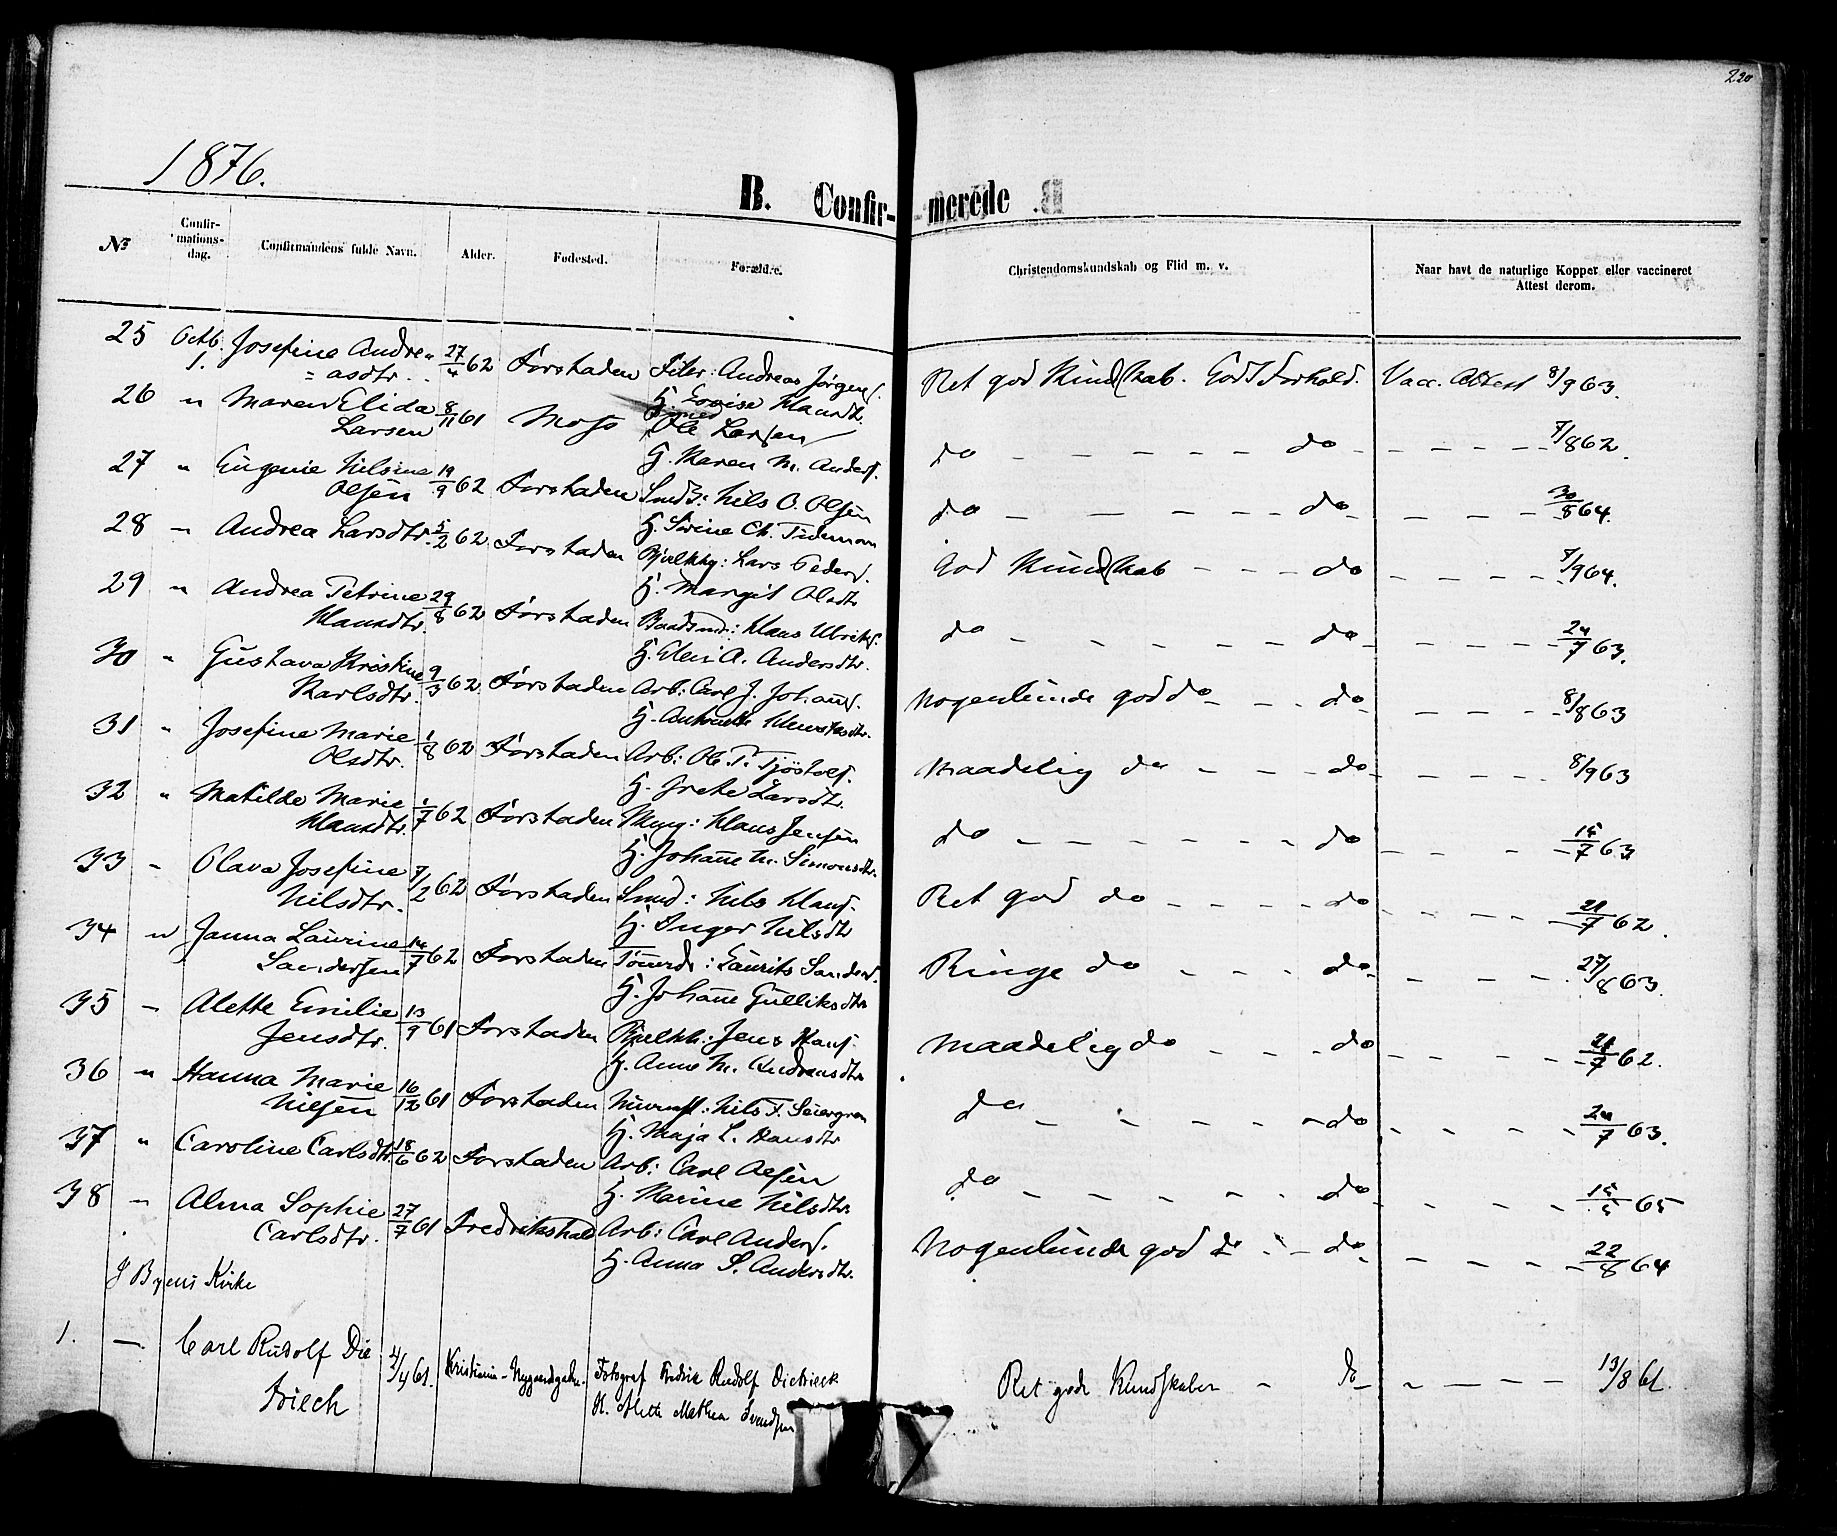 220
1876.
B. Confir-merede
№
Confir-
mations-
dag.
Confirmandens fulde Navn.
Alder.
Fødested.
Forældre.
Christendomskundskab og Flid m. v.
Naar havt de naturlige Kopper eller vaccineret
Attest derom.
25 Octb. 1. Josefine Andre= 27/4 62 Forstaden Filer: Andreas Jørgens.
=asdtr. H. Lovise Klausdtr.
Ret god Kundskab. Godt Forhold. Vacc. Attest 8/9 63.
26 " Maren Elida 8/11 61 Moss Ole Larsen
Larsen H. Maren M. Anders.
do - - - - - do - - - - 7/8 62.
27 " Eugenie Nilsine 19/9 62 Forstaden Smdk: Nils O. Olsen
Olsen H. Sørine Ch. Tideman
do - - - - do - - - - 30/8 64.
28 " Andrea Larsdtr. 5/2 62 Forstaden Bjelkhg: Lars Peders.
H. Margit Olsdtr
God Kundskab - - - do - - - - 7/9 64.
29 " Andrea Petrine 29/8 62 Forstaden Baadsmd: Klaus Ulriks.
Klausdtr. H. Eleni A. Andersdtr.
do - - - - - do - - - - 24/7 63.
30 " Gustava Kristine 9/3 62 Forstaden Arb: Carl J. Johans.
Karlsdtr. H.
Nogenlunde god do - - do - - - - 8/8 63
31 " Josefine Marie 1/8 62 Forstaden Arb: Ol. T. Tjöstols.
Olsdtr. H. Grete Larsdtr.
Maadelig do - - - do - - - - 8/9 63
32 " Matilde Marie 1/7 62 Forstaden Murg: Klaus Jensen
Klausdtr. H. Johanne M. Simonsdtr.
do - - - - - do - - - - 15/7 63
33 " Olava Josefine 7/2 62 Forstaden Smd: Nils Klaus.
Nilsdtr. H. Inger Nilsdtr
Ret god do - - - - do - - - - 21/7 62.
34 " Janna Laurine 14/7 62 Forstaden Tömmerds: Laurits Sanders.
Sandersen H. Johanne Gulliksdtr
Ringe do - - - do - - - 27/8 63.
35 " Alette Emilie 13/9 61 Forstaden Bjelkh: Jens Hans.
Jensdtr. H. Anne M. Andreasdtr
Maadelig do - - - do - - - - 21/7 62.
36 " Hanna Marie 16/12 61 Forstaden Murmst: Nils F. Seiergren
Nilsen H. Maja L. Hansdtr
do - - - - - do - - - - 24/7 63.
37 " Caroline Carlsdtr. 18/6 62 Forstaden Arb: Carl Olsen
H. Karine Nilsdtr.
do - - - - - do - - - - 15/5 65
38 " Alma Sophie 27/7 61 Fredrikshald Arb: Carl Anders.
Carlsdtr. H. Anna S. Andersdtr.
Nogenlunde god do - - do - - - - 22/8 64
I Byens Kirke
1. — Carl Rudolf Die 4/4 61. Kristiania - Nygaardgaden. Fotograf Fredrik Rudolf Dietrieck
triech H. Mette Mathea Svendsen
Ret gode Kundskaber - do - - - - 13/8 61.